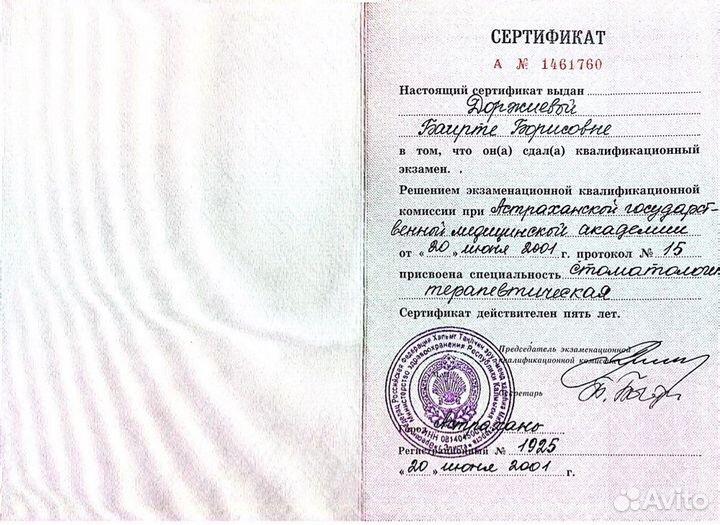 СЕРТИФИКАТ
А № 1461760
Настоящий сертификат выдан
Доржиевой
Баирте Борисовне
в том, что он(а) сдал(а) квалификационный
экзамен. .
Решением экзаменационной квалификационной
комиссии при Астраханской государст-
венной медицинской академии
от «20» июня 2001 г. протокол № 15
присвоена специальность стоматология
терапевтическая
Сертификат действителен пять лет.
Председатель экзаменационной
квалификационной комиссии
Секретарь
Город Астрахань
Регистрационный № 1925
«20» июня 2001 г.
Министерство здравоохранения Республики Калмыкия
Российская Федерация
Avito